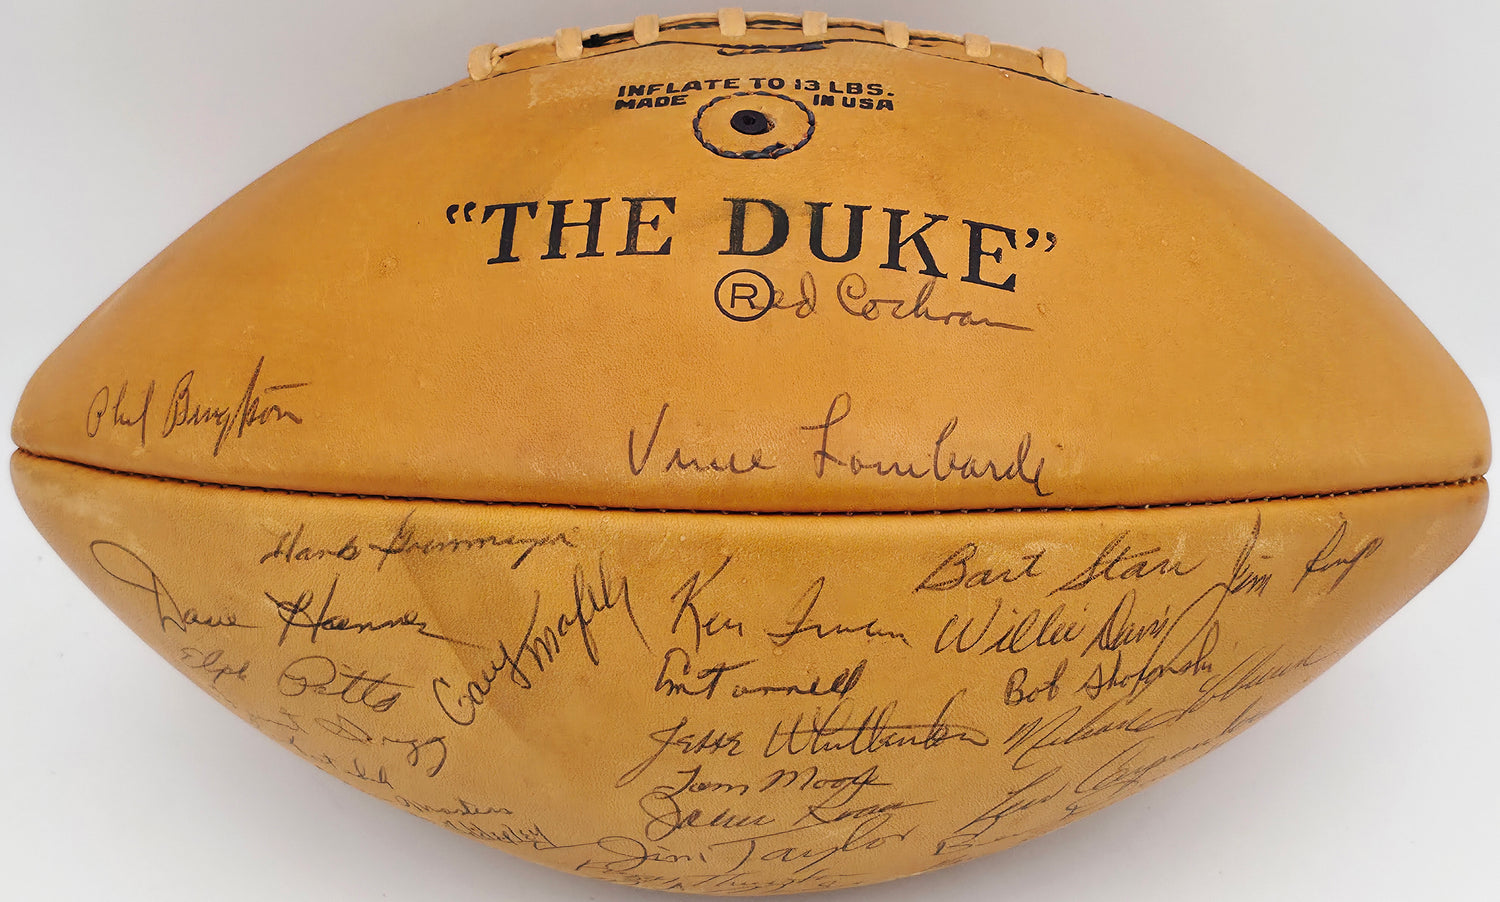 INFLATE TO 13 LBS.
MADE IN USA
"THE DUKE"
®
Red Cochran
Phil Bengtson
Vince Lombardi
Hank Gremminger
Dave Hanner
Elijah Pitts
Gary Knafelc
Ken Iman
Em Tunnell
Jesse Whittenton
Tom Moore
Jim Taylor
Bart Starr
Jim Ringo
Willie Davis
Bob Skoronski
Lew Carpenter